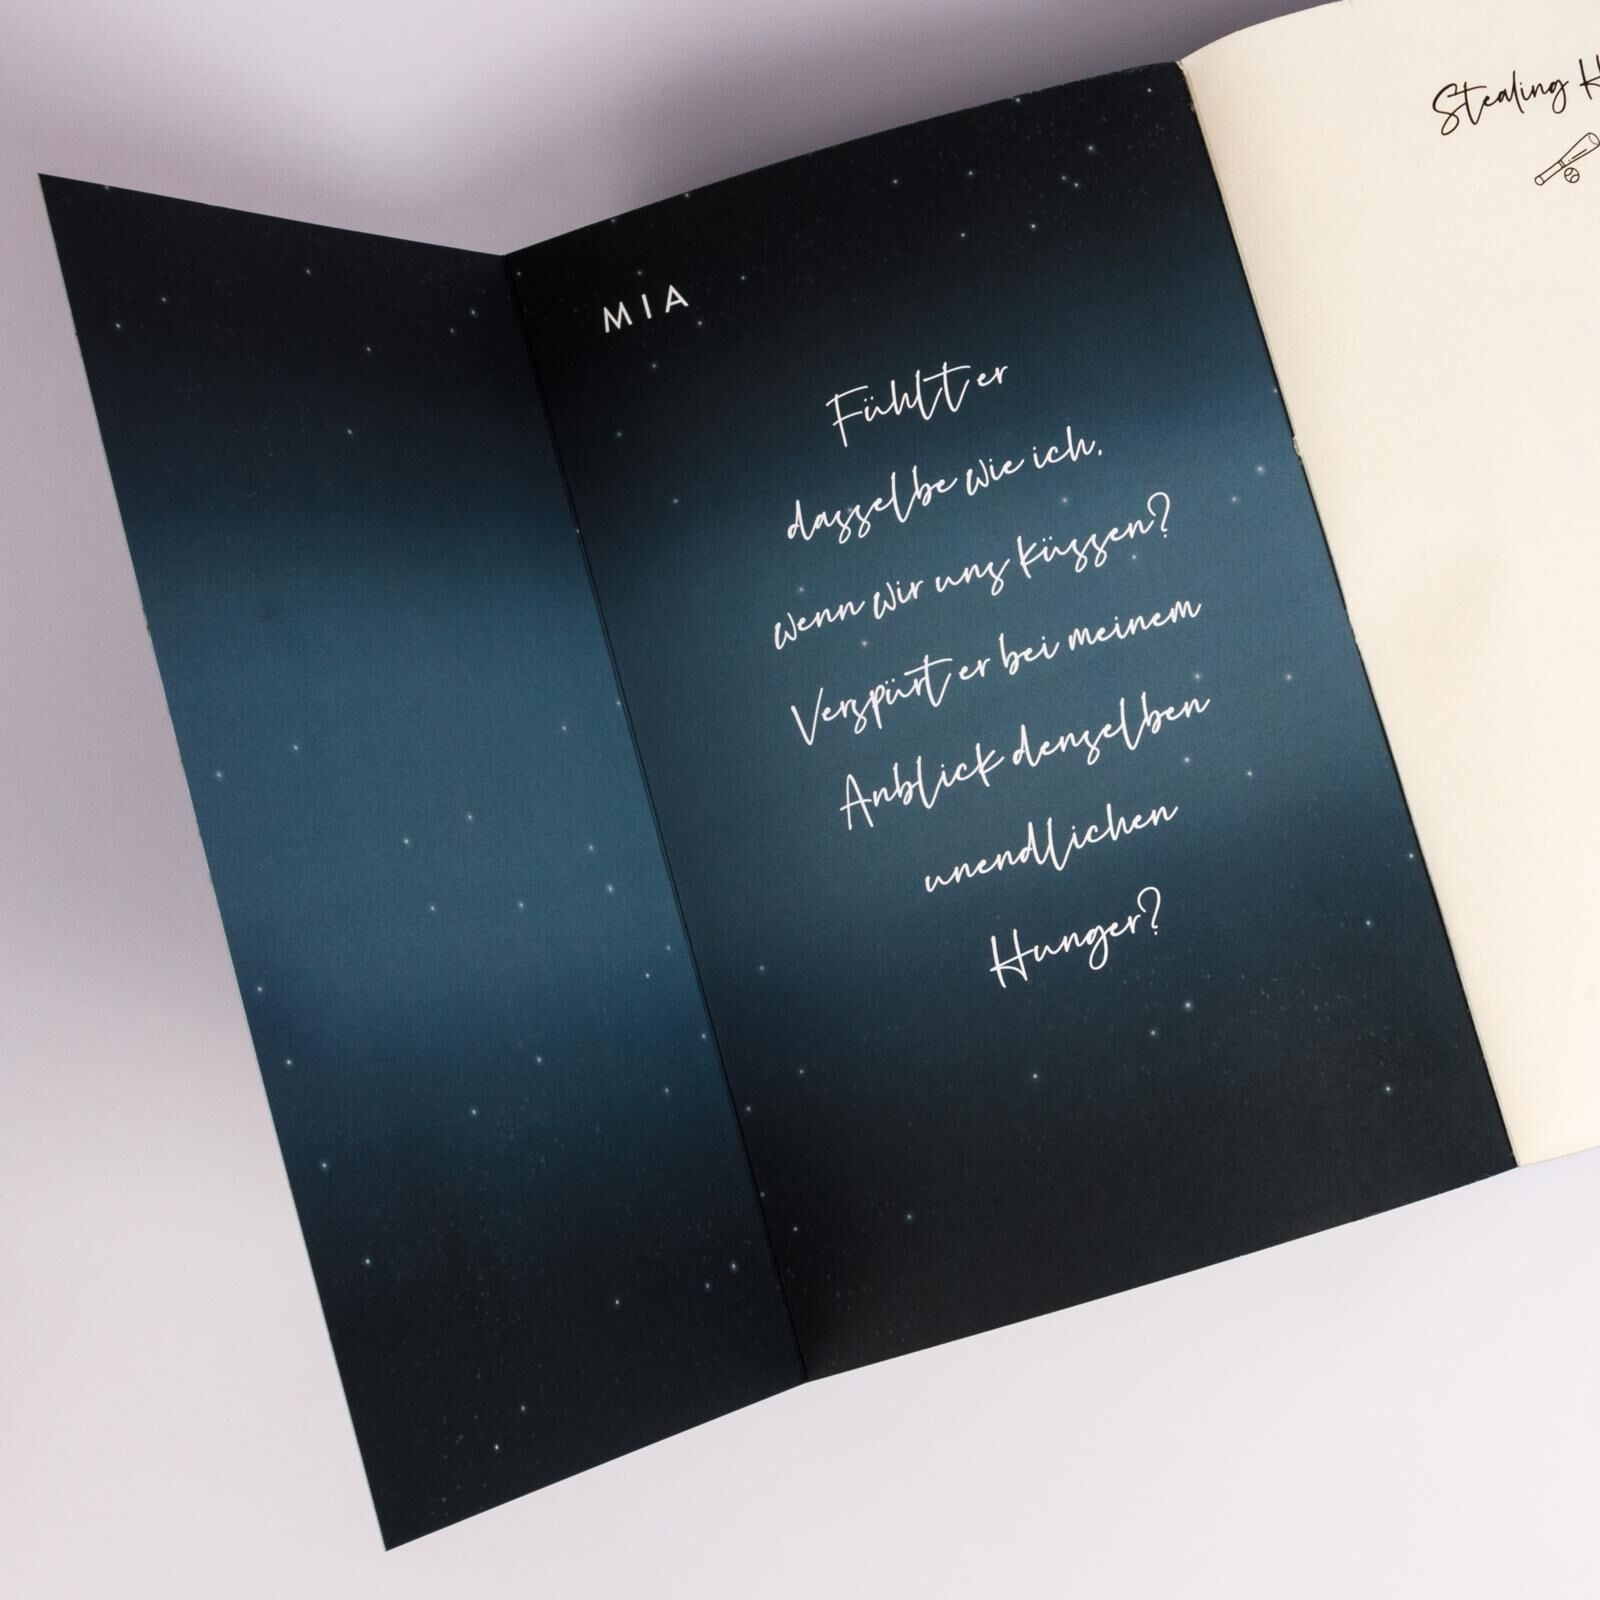 MIA
Fühlt er
dasselbe wie ich,
wenn wir uns küssen?
Verspürt er bei meinem
Anblick denselben
unendlichen
Hunger?
Stealing